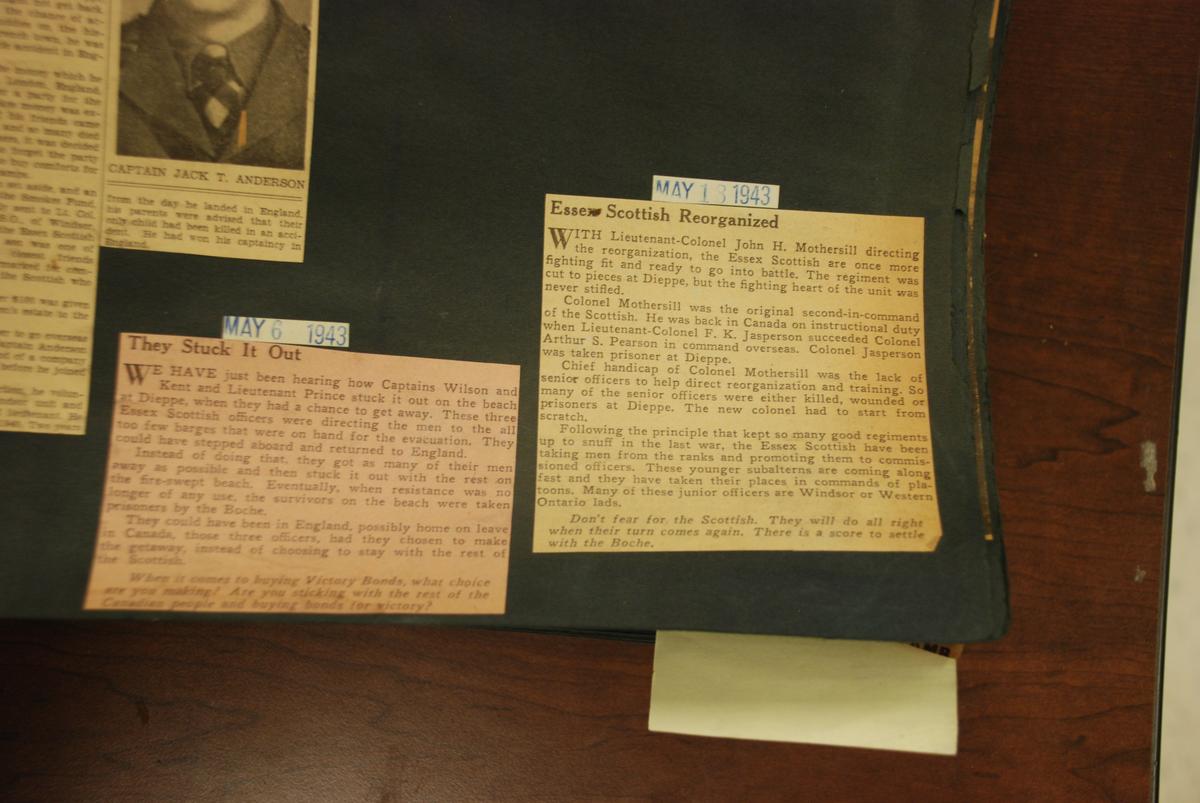 not get back.
the chance of ac-
on the
town, he was
accident in Eng-
money which he
London, England,
a party for the
money was ex-
his friends came
and so many died
it was decided
forget the party
buy comforts for
set aside, and an
the Smokes Fund.
sent to Lt. Col.
of Windsor,
the Essex Scottish
was one of
friends
the Scottish who
$100 was given
estate to the
to go overseas
Anderson
of a company
before he joined
Two years
CAPTAIN JACK T. ANDERSON
from the day he landed in England.
his parents were advised that their
only child had been killed in an acci-
dent. He had won his captaincy in
England.
MAY 6 1943
They Stuck It Out
WE HAVE just been hearing how Captains Wilson and
Kent and Lieutenant Prince stuck it out on the beach
at Dieppe, when they had a chance to get away. These three
Essex Scottish officers were directing the men to the all
too few barges that were on hand for the evacuation. They
could have stepped aboard and returned to England.
Instead of doing that, they got as many of their men
away as possible and then stuck it out with the rest on
the fire-swept beach. Eventually, when resistance was no
longer of any use, the survivors on the beach were taken
prisoners by the Boche.
They could have been in England, possibly home on leave
in Canada, those three officers, had they chosen to make
the getaway, instead of choosing to stay with the rest of
the Scottish.
When it comes to buying Victory Bonds, what choice
are you making? Are you sticking with the rest of the
Canadian people and buying bonds for victory?
MAY 13 1943
Essex Scottish Reorganized
WITH Lieutenant-Colonel John H. Mothersill directing
the reorganization, the Essex Scottish are once more
fighting fit and ready to go into battle. The regiment was
cut to pieces at Dieppe, but the fighting heart of the unit was
never stifled.
Colonel Mothersill was the original second-in-command
of the Scottish. He was back in Canada on instructional duty
when Lieutenant-Colonel F. K. Jasperson succeeded Colonel
Arthur S. Pearson in command overseas. Colonel Jasperson
was taken prisoner at Dieppe.
Chief handicap of Colonel Mothersill was the lack of
senior officers to help direct reorganization and training. So
many of the senior officers were either killed, wounded or
prisoners at Dieppe. The new colonel had to start from
scratch.
Following the principle that kept so many good regiments
up to snuff in the last war, the Essex Scottish have been
taking men from the ranks and promoting them to commis-
sioned officers. These younger subalterns are coming along
fast and they have taken their places in commands of pla-
toons. Many of these junior officers are Windsor or Western
Ontario lads.
Don't fear for the Scottish. They will do all right
when their turn comes again. There is a score to settle
with the Boche.